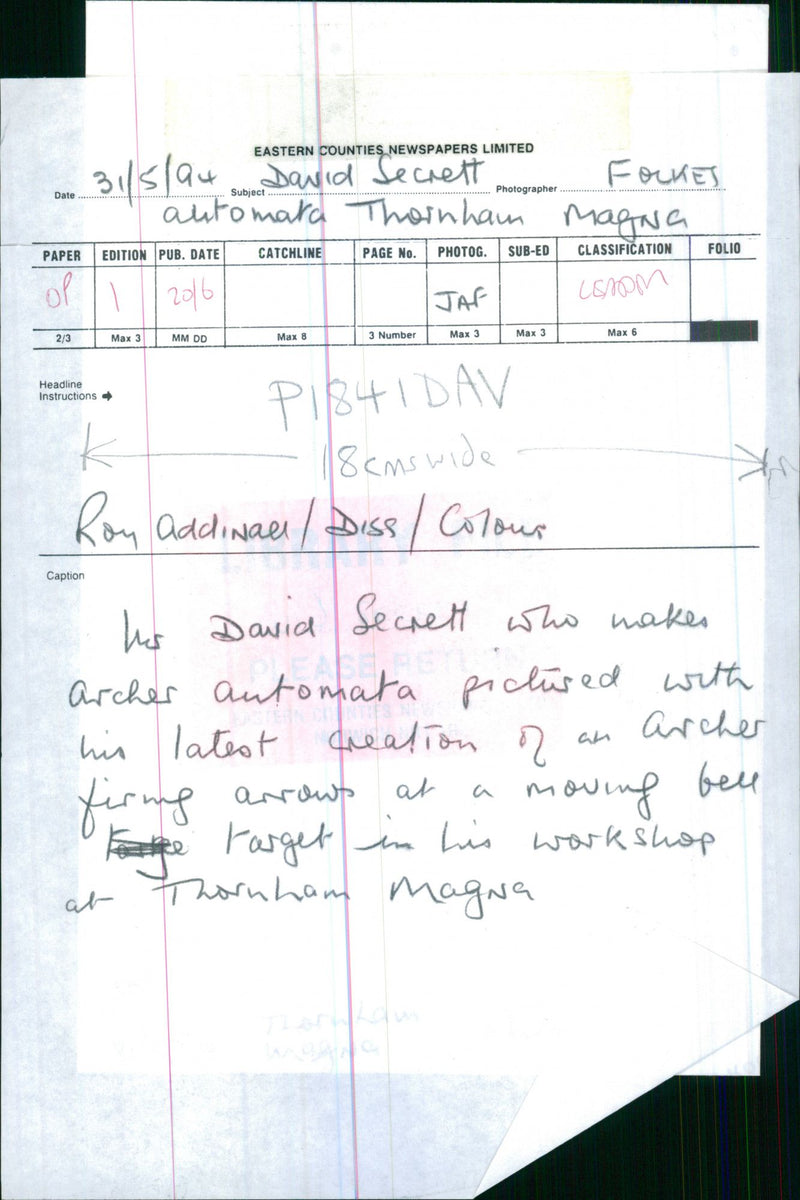 EASTERN COUNTIES NEWSPAPERS LIMITED
Date 31/5/94 Subject David Secrett Photographer FOLKES
automata Thornham Magna
PAPER EDITION PUB. DATE CATCHLINE PAGE No. PHOTOG. SUB-ED CLASSIFICATION FOLIO
OP 1 20/6 JAF
2/3 Max 3 MM DD Max 8 3 Number Max 3 Max 3 Max 6
Headline
Instructions
P1841DAV
18cms wide
Roy Addinall / Diss / Colour
Caption
Mr David Secrett who makes
archer automata pictured with
his latest creation of an archer
firing arrows at a moving bell
target in his workshop
at Thornham Magna
LIBRARY
PLEASE RETURN
EASTERN COUNTIES NEWS
Thornham
Magna